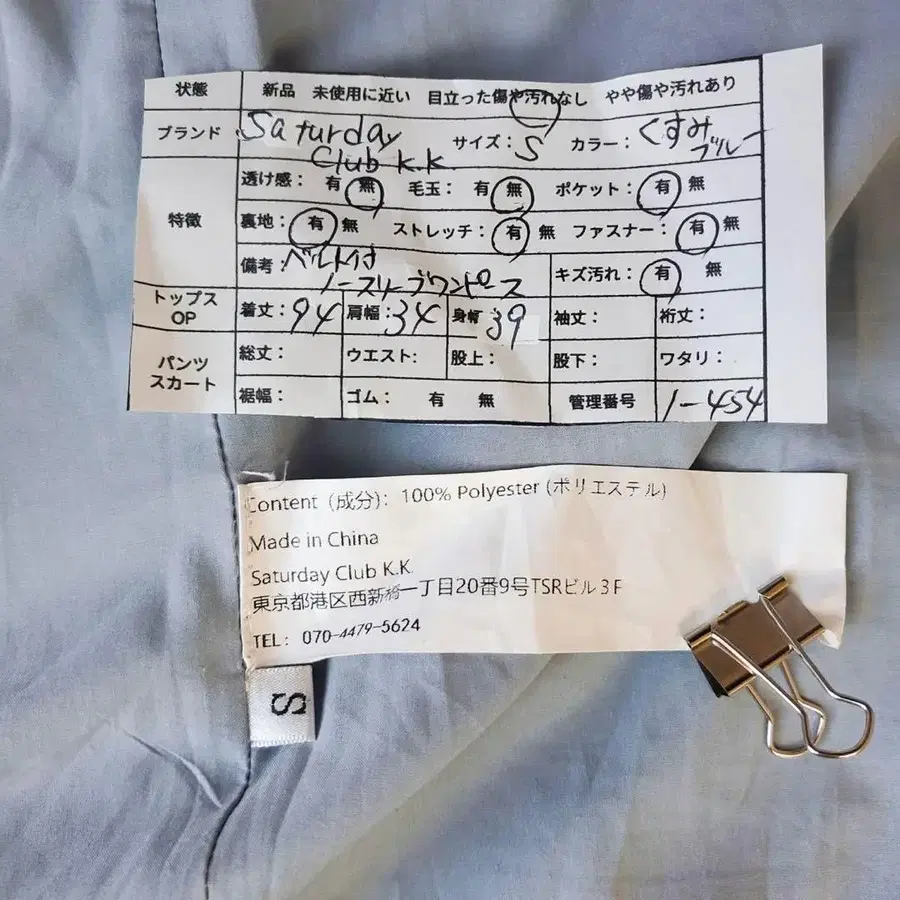 状態 新品 未使用に近い 目立った傷や汚れなし やや傷や汚れあり
ブランド Saturday Club K.K サイズ: S カラー: くすみブルー
特徴
透け感: 有 無 毛玉: 有 無 ポケット: 有 無
裏地: 有 無 ストレッチ: 有 無 ファスナー: 有 無
備考: ベルト付 ノースリーブワンピース キズ汚れ: 有 無
トップス OP 着丈: 94 肩幅: 34 身幅: 39 袖丈: 裄丈:
パンツ スカート
総丈: ウエスト: 股上: 股下: ワタリ:
裾幅: ゴム: 有 無 管理番号 1-454
Content (成分): 100% Polyester (ポリエステル)
Made in China
Saturday Club K.K.
東京都港区西新橋一丁目20番9号TSRビル3F
TEL: 070-4479-5624
S